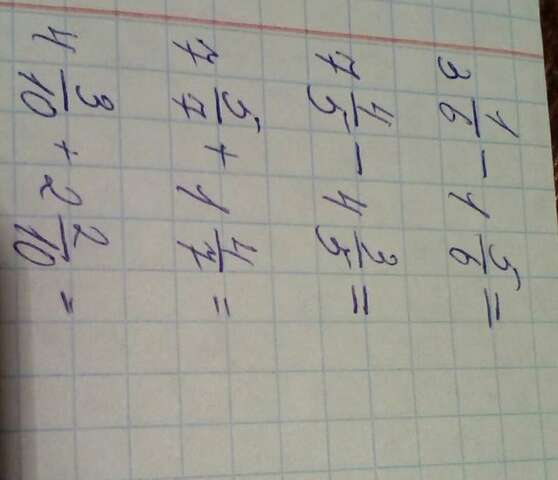 3 1/6 - 1 5/6 =
7 4/5 - 4 3/5 =
7 5/7 + 1 4/7 =
4 3/10 + 2 2/10 =